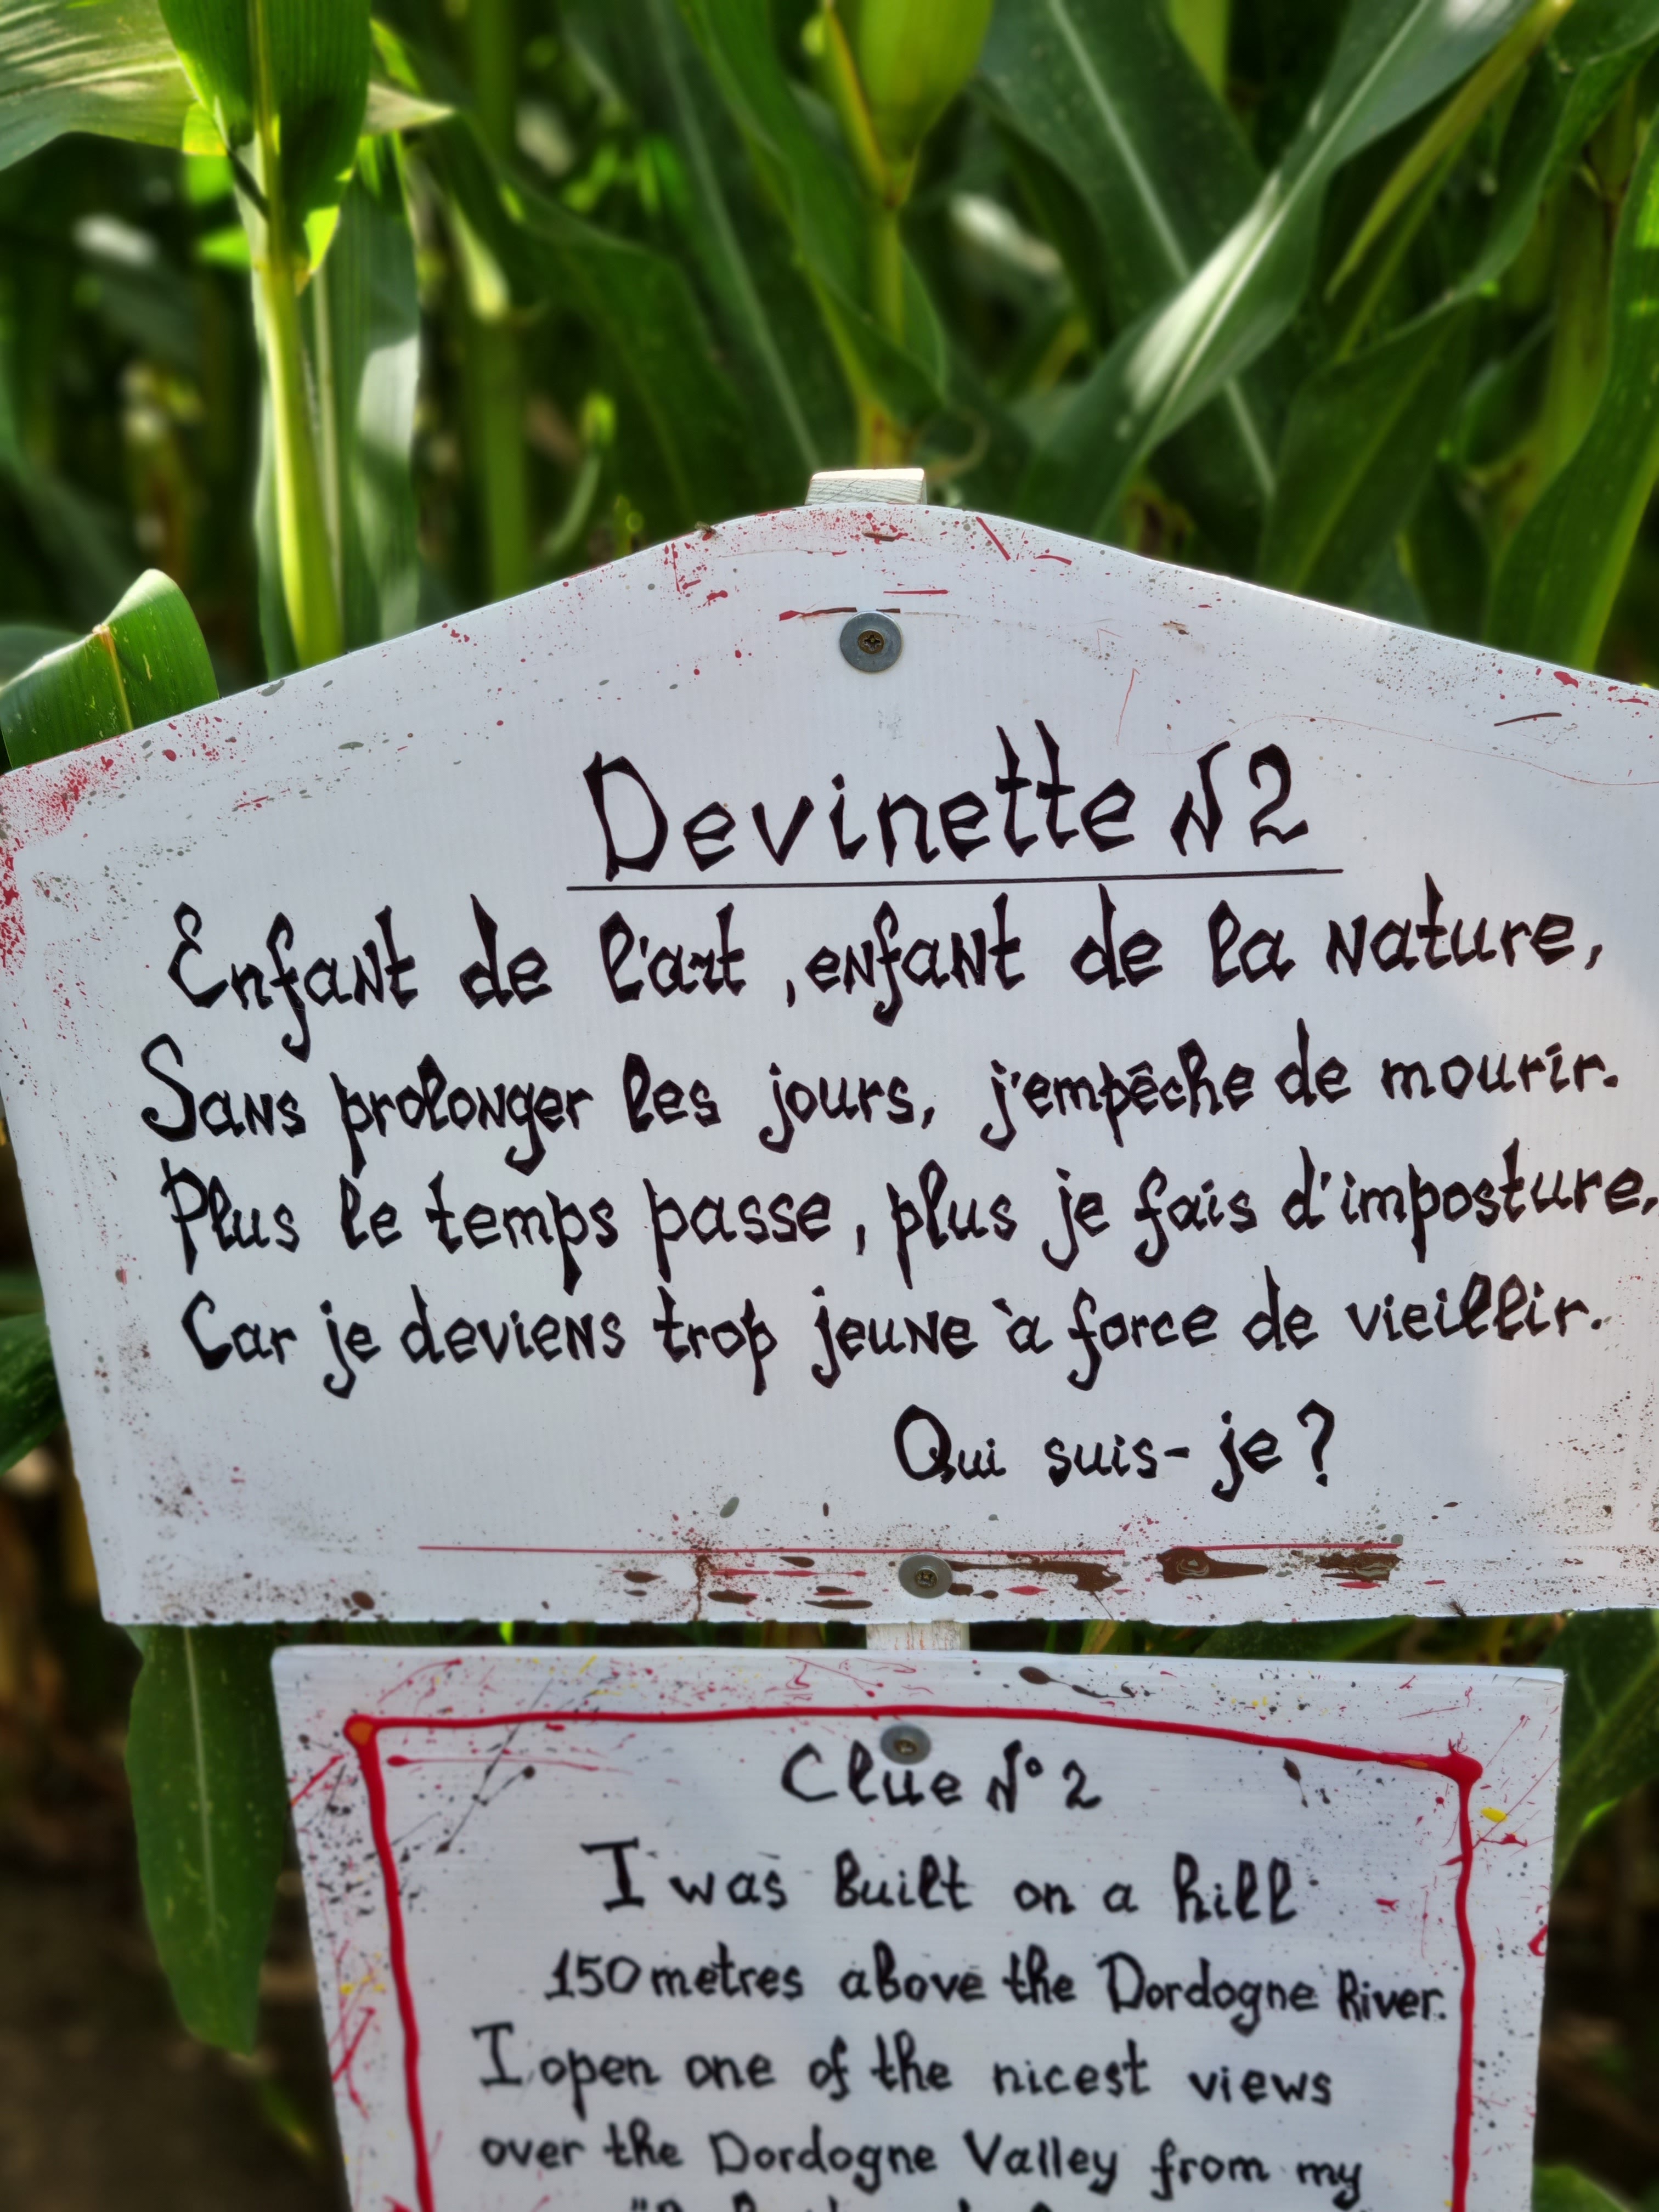 Devinette N2
Enfant de l'art, enfant de la nature,
Sans prolonger les jours, j'empêche de mourir.
Plus le temps passe, plus je fais d'imposture,
Car je deviens trop jeune à force de vieillir.
Qui suis-je?
Clue N° 2
I was built on a hill
150 metres above the Dordogne River.
I open one of the nicest views
over the Dordogne Valley from my